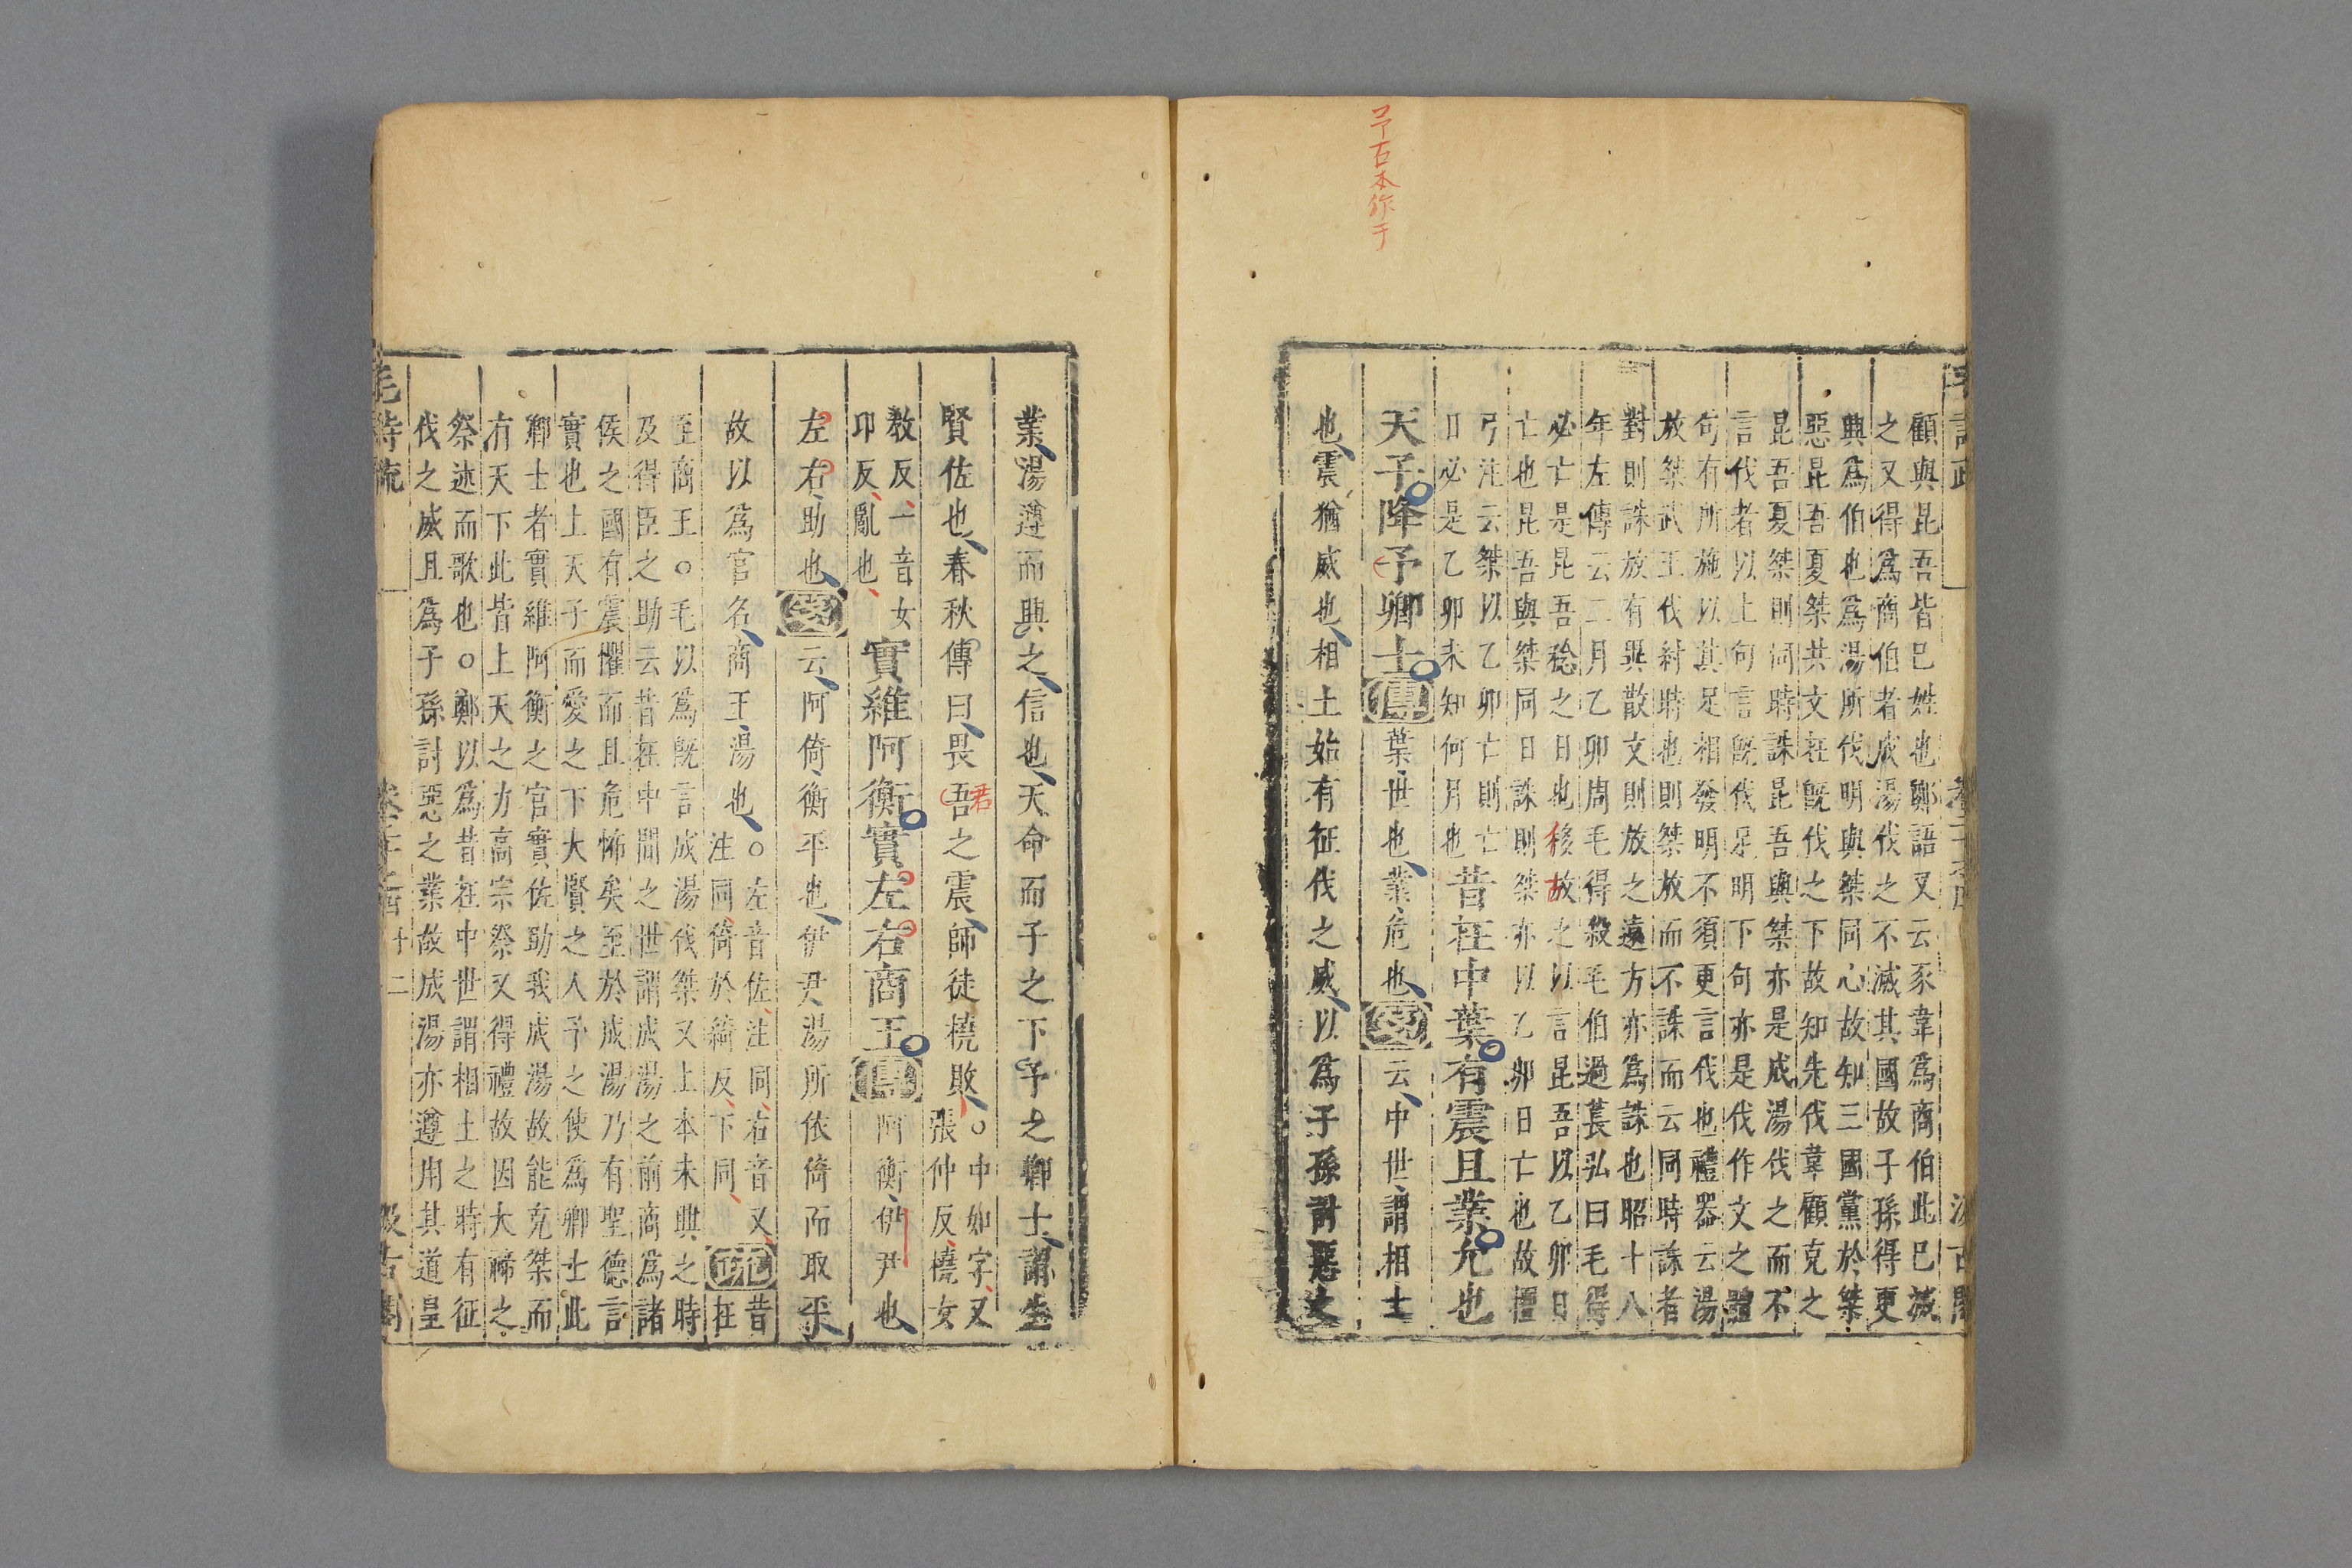 予古本作于
顧與昆吾皆巳姓也鄭語又云豕韋爲商伯此巳滅
之又得爲商伯者成湯伐之不滅其國故子孫得更
興爲伯也爲湯所伐明與桀同心故知三國黨於桀
惡昆吾夏桀共文在旣伐之下故知先伐韋顧克之
昆吾夏桀則同時誅昆吾與桀亦是成湯伐之而不
言伐者以上句言旣伐足明下句亦是伐作文之體
句有所施以其足相發明不須更言伐也禮器云湯
放桀武王伐紂時也則桀放而不誅而云同時誅者
對則誅放有異散文則放之遠方亦爲誅也昭十八
年左傳云二月乙卯周毛得殺毛伯過萇弘曰毛得
必亡是昆吾稔之日也移故之以言昆吾以乙卯日
亡也昆吾與桀同日誅則桀亦以乙卯日亡也故檀
弓注云桀以乙卯亡則亡
日必是乙卯未知何月也
昔在中葉有震且業允也
天子降予卿士傳葉世也業危也箋云中世謂相土
也震猶威也相土始有征伐之威以爲子孫討惡之
業湯遵而興之信也天命而子之下予之卿士謂生
賢佐也春秋傳曰畏吾之震師徒橈敗○中如字又
張仲反橈女
君
教反一音女
卬反亂也
實維阿衡實左右商王傳阿衡伊尹也
左右助也箋云阿倚衡平也伊尹湯所依倚而取平
故以爲官名商王湯也○左音佐注同右音又
注同倚於綺反下同
疏昔在
至商王○毛以爲旣言成湯伐桀又上本未興之時
及得臣之助云昔在中間之世謂成湯之前商爲諸
侯之國有震懼而且危怖矣至於成湯乃有聖德言
實也上天子而愛之下大賢之人予之使爲卿士此
卿士者實維阿衡之官實佐助我成湯故能克桀而
有天下此皆上天之力高宗祭又得禮故因大禘之
祭述而歌也○鄭以爲昔在中世謂相土之時有征
伐之威且爲子孫討惡之業故成湯亦遵用其道皇
毛詩疏